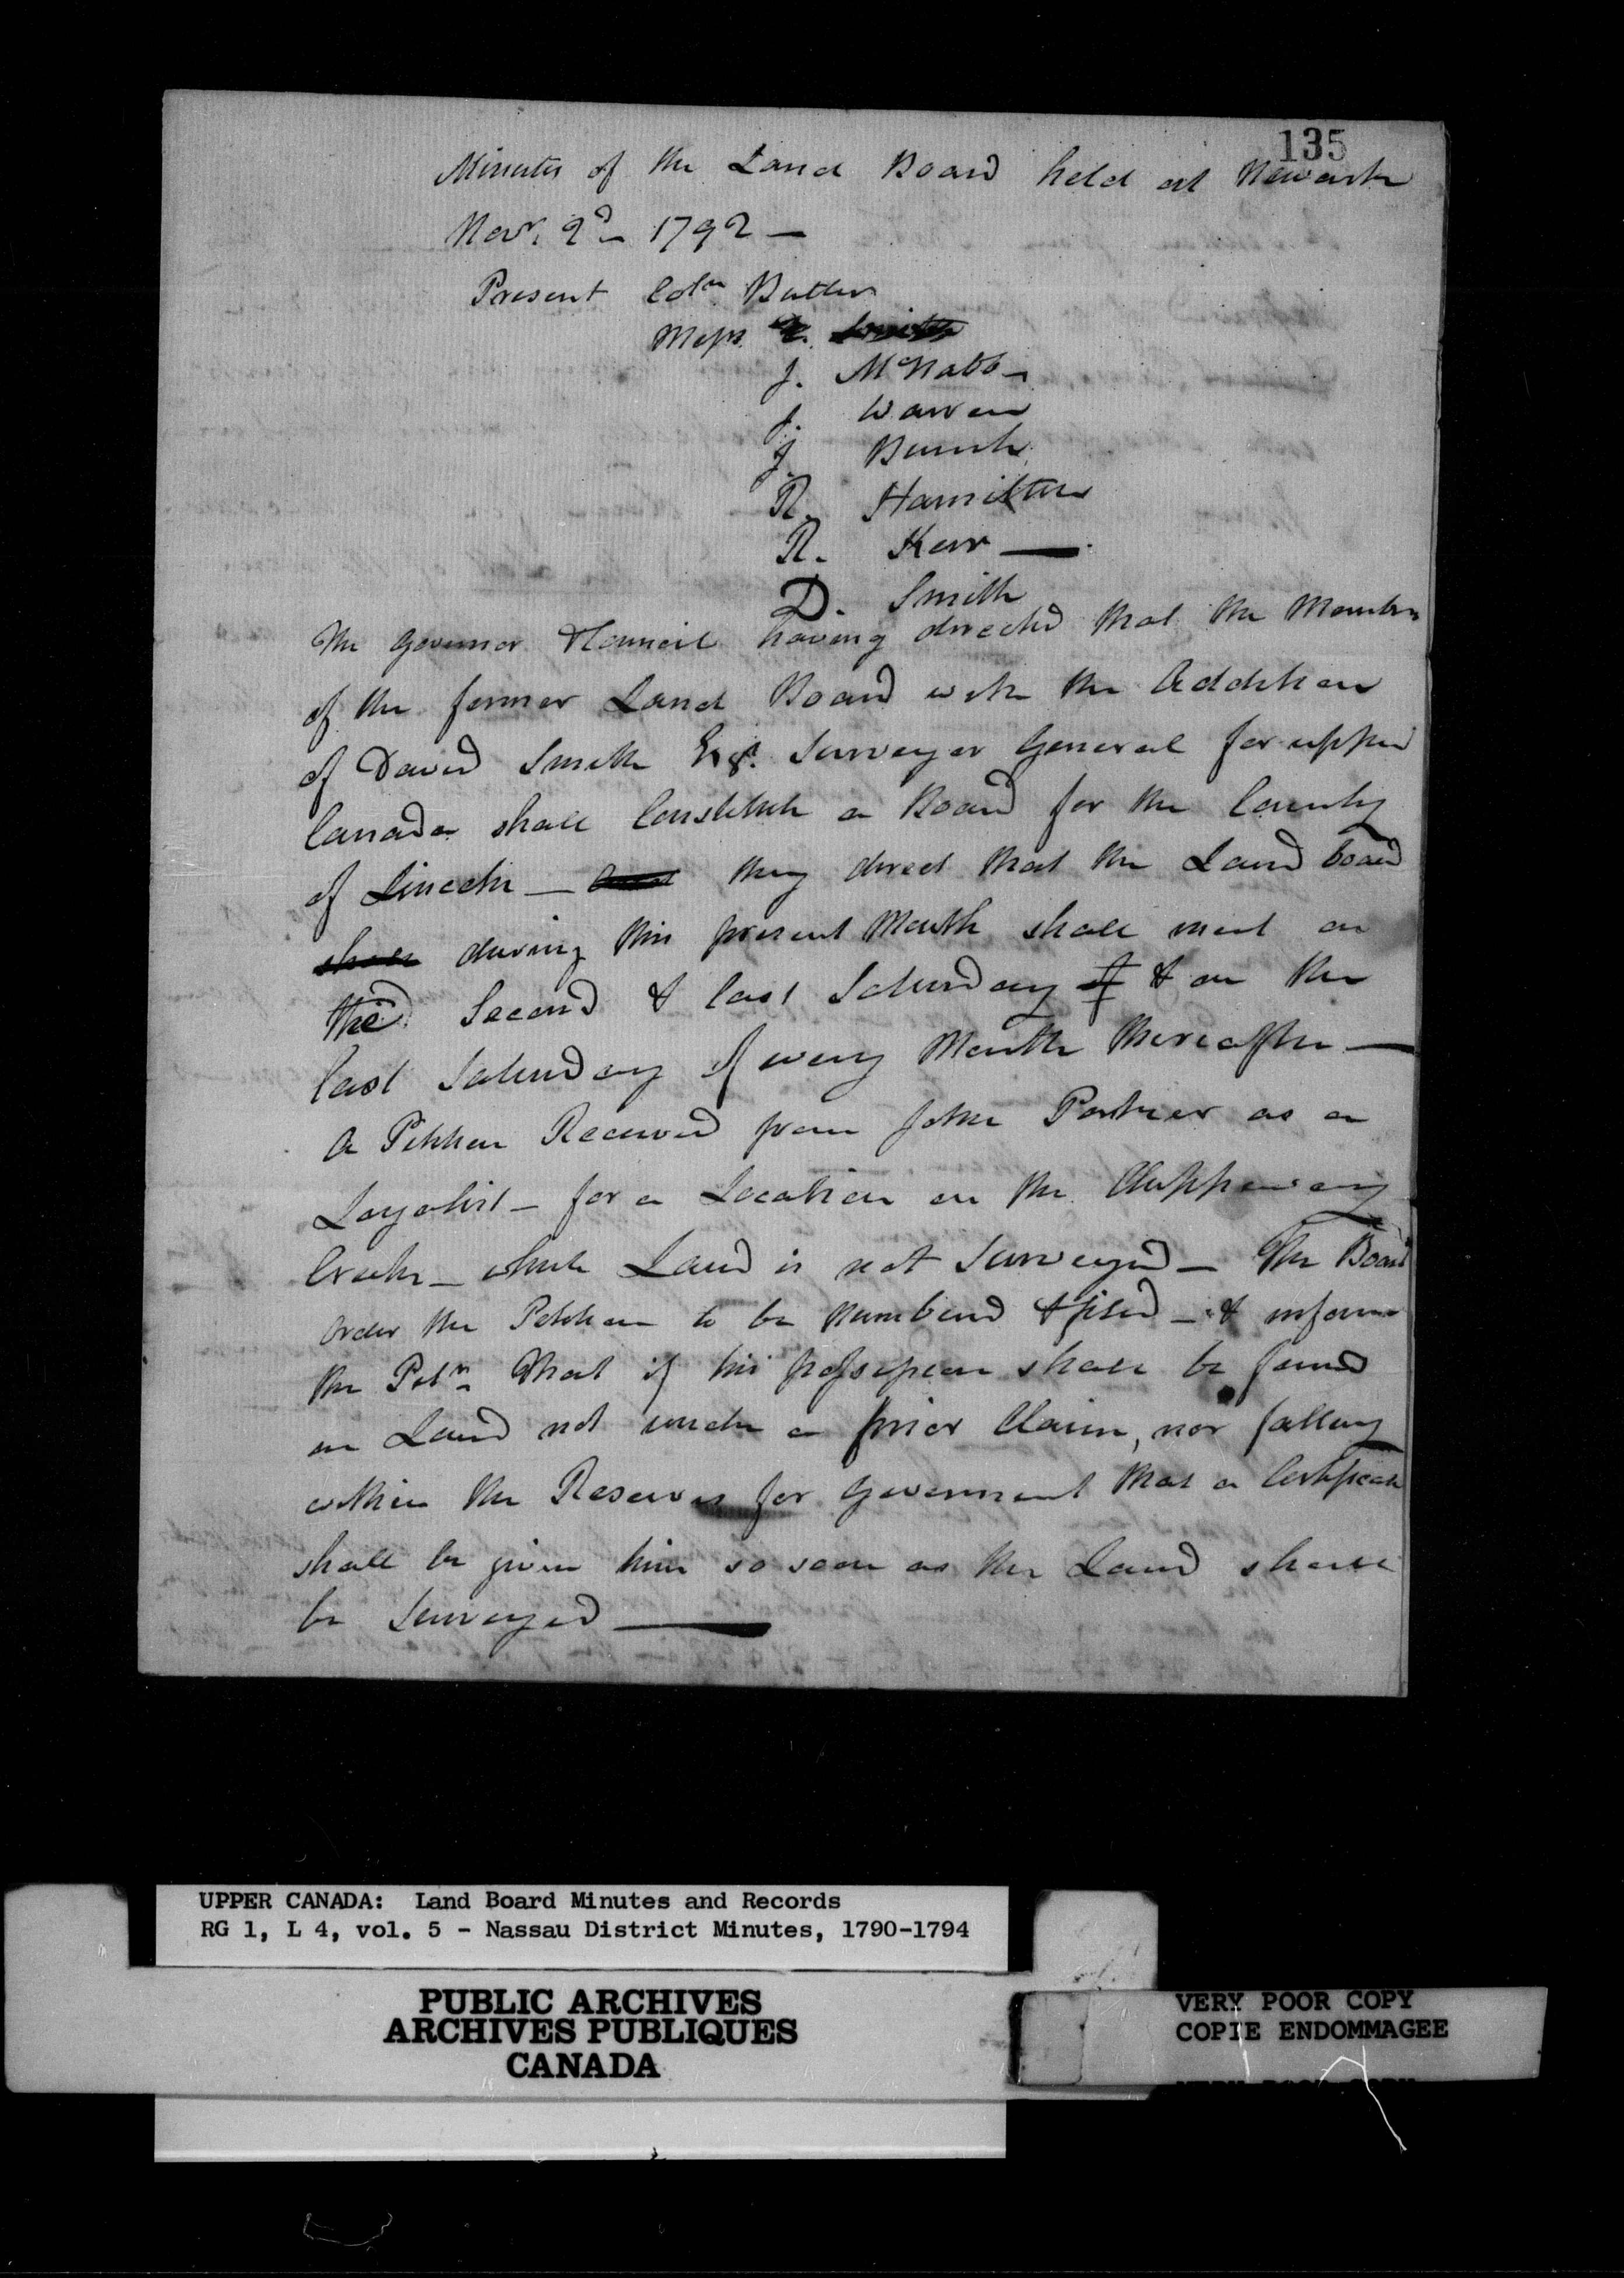 135
Minutes of the Land Board held at Newark
Novr. 2d 1792 —
Present Coln Butler
Messrs. Smith
J. McNabb —
J. Warren
J. Burch
R. Hamilton
R. Kerr —
D. Smith
The Governor & Council having directed that the Members
of the former Land Board with the Addition
of David Smith Esqr. Surveyor General for upper
Canada shall Constitute a Board for the County
of Lincoln — and they direct that the Land board
shall during this present Month shall meet on
the Second & last Saturday of & on the
last Saturday of every Month thereafter —
A Petition Received from John Partner as a
Loyalist — for a Location on the Chippeway
Creek — which Land is not Surveyed — The Board
order the Petition to be numbered & filed — & inform
the Petn. that if his possession shall be found
on Land not under a prior Claim, nor falling
within the Reserves for Government that a Certificate
shall be given him so soon as the Land shall
be Surveyed —
UPPER CANADA: Land Board Minutes and Records
RG 1, L 4, vol. 5 - Nassau District Minutes, 1790-1794
PUBLIC ARCHIVES
ARCHIVES PUBLIQUES
CANADA
VERY POOR COPY
COPIE ENDOMMAGEE